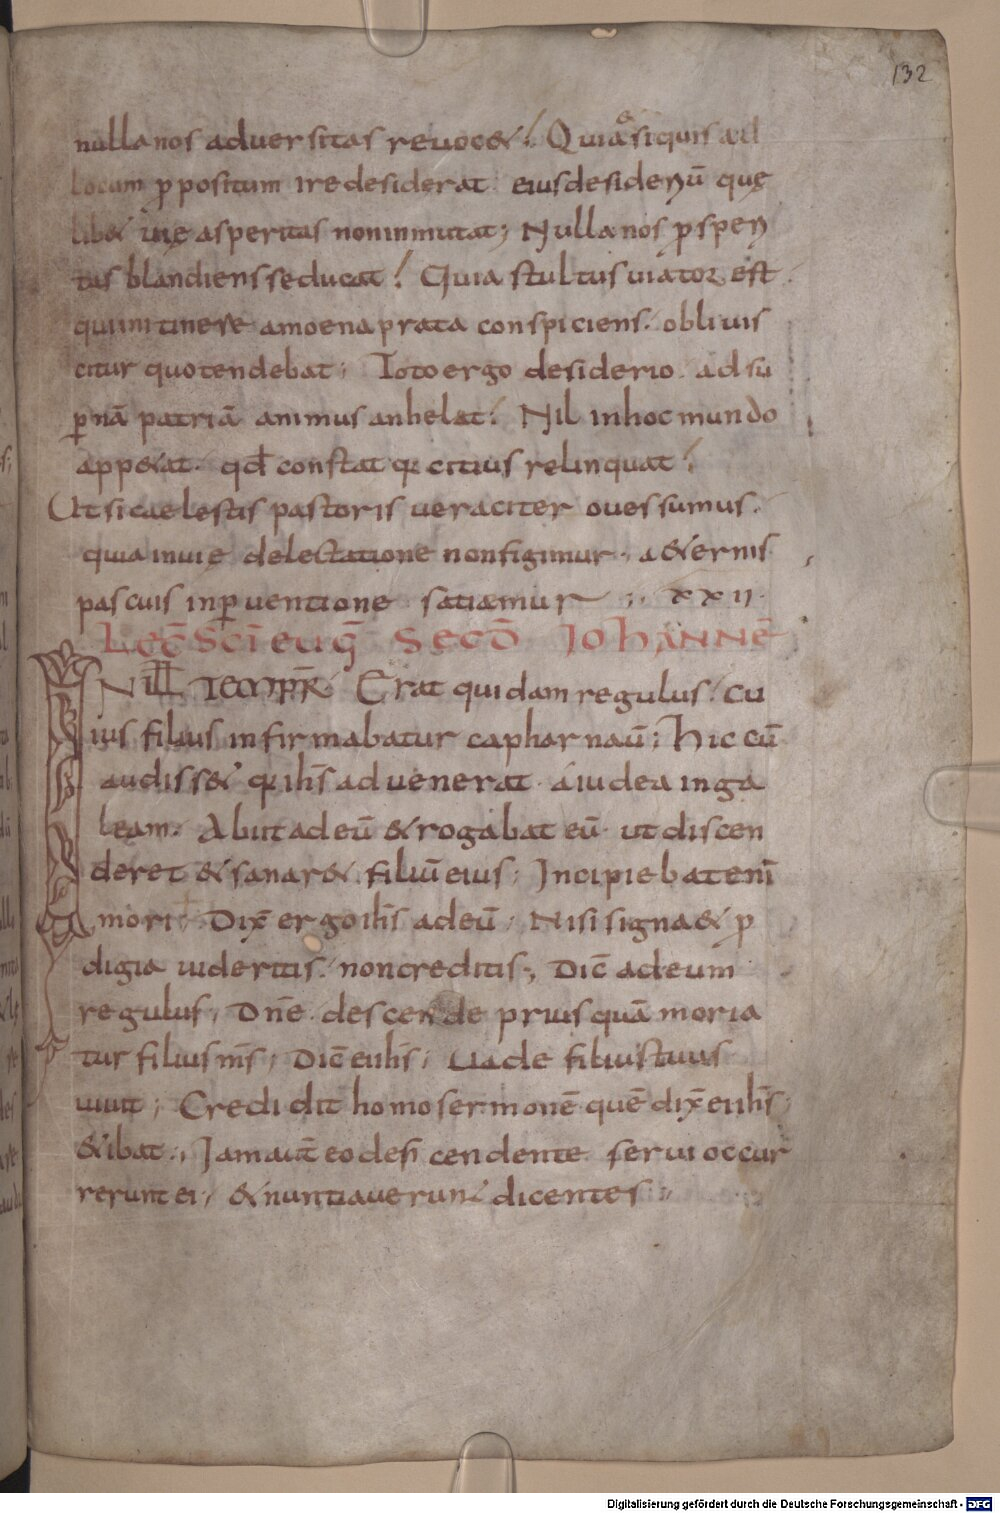 132
nulla nos aduersitas reuoc& Quia & siquis ad
locum ppositum ire desiderat eius desideriū quę
lib& inę asperitas non inmutat; Nulla nos psperi
tas blandiens seducat! Quia stultus uiator est
qui in itinere amoena prata conspiciens. obliuis
citur quo tendebat; Toto ergo desiderio. ad su
pnā patriā animus anhelat! Nil in hoc mundo
app&at. qđ constat q citius relinquat!
Ut si caelestis pastoris ueraciter oues sumus.
quia in uię delectatione non figimur. a&ernis
pascuis in puentione satiaemur ;. xxii.
Lec̄ sc̄i euḡ secd̄ Iohannē
IN ill tempr̄ Erat quidam regulus. cu
ius filius infirmabatur capharnaū; Hic cū
audiss& q ih̄s aduenerat a iudea in ga
leam. Abiit ad eū & rogabat eū ut discen
deret & sanar& filiū eius; Incipiebat eni̅
mori. Dix̄ ergo ih̄s ad eū; Nisi signa & p
digia uideritis. non creditis; Dic̄ ad eum
regulus; Dn̄e descende prius quā moria
tur filius m̄s; Dic̄ ei ih̄s; Uade filius tuus
uiuit; Credidit homo sermonē quē dix̄ ei ih̄s
& ibat; Iam aut̄ eo descendente serui occur
rerunt ei; & nuntiauerunt dicentes;
Digitalisierung gefördert durch die Deutsche Forschungsgemeinschaft - DFG